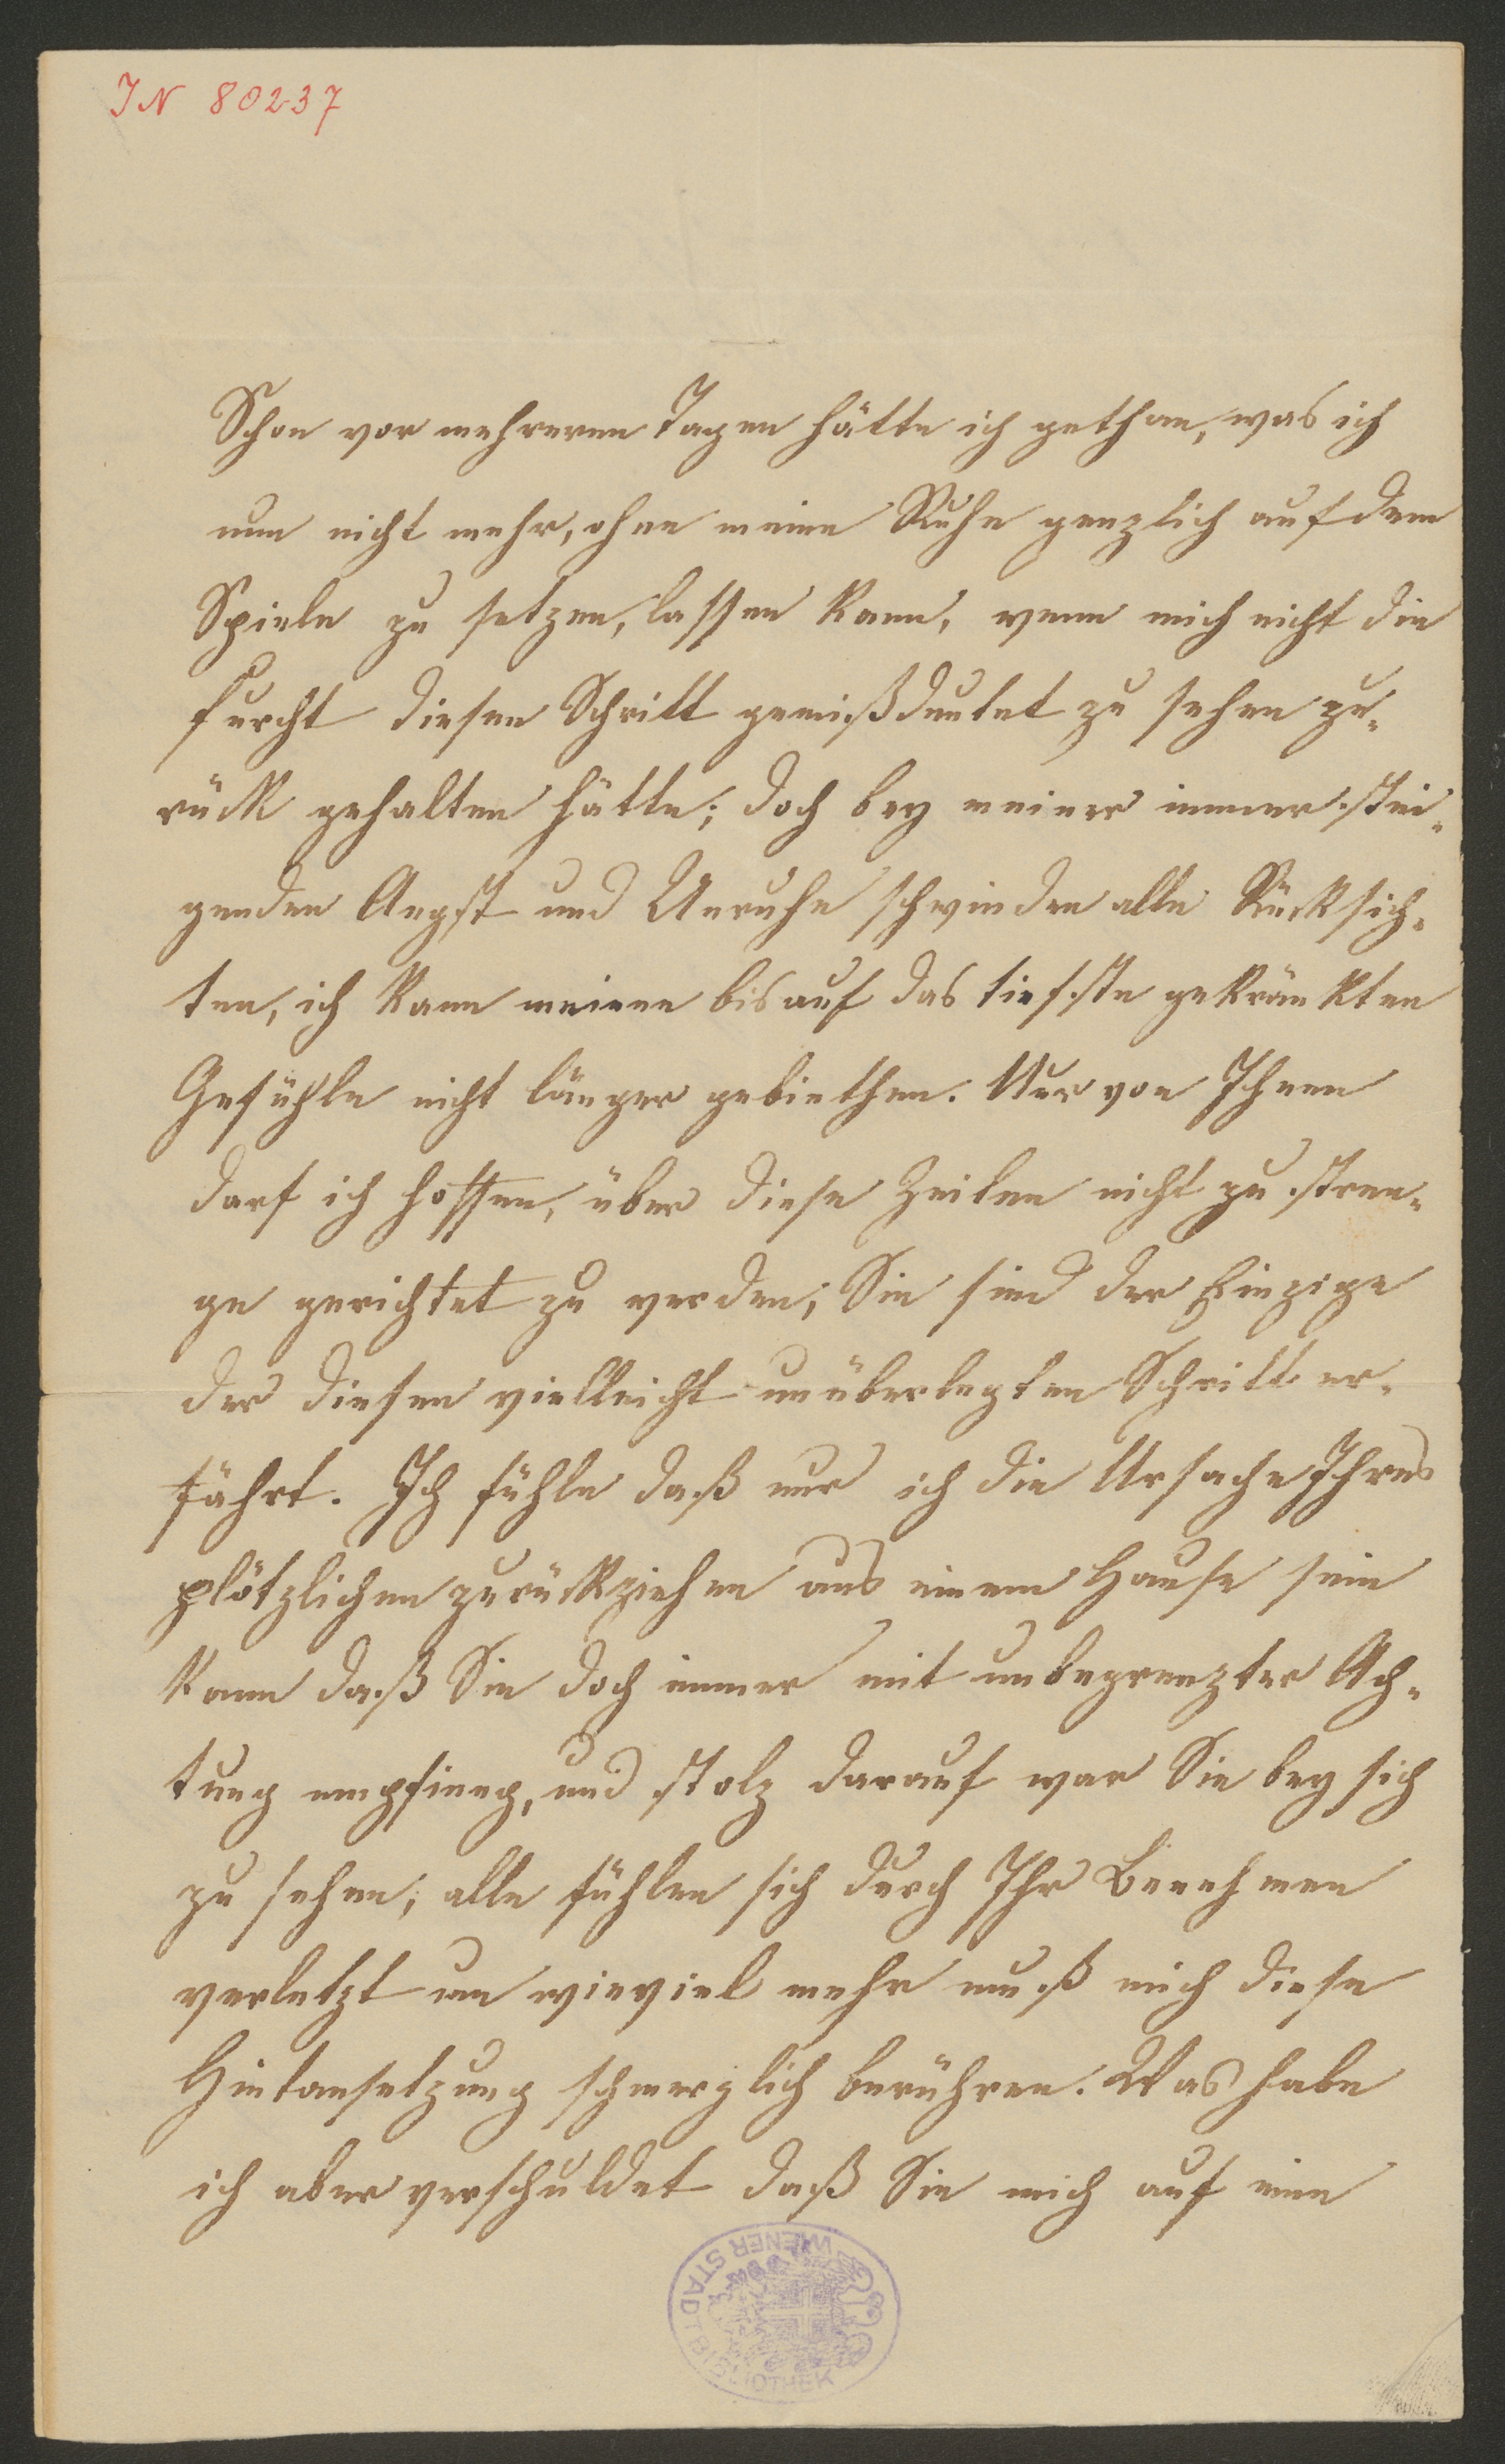 IN 80237
Schon vor mehreren Tagen hätte ich gethan, was ich
nun nicht mehr, ohne meine Ruhe genzlich auf dem
Spiele zu setzen, lassen kann, wenn mich nicht die
Furcht diesen Schritt gemißdeutet zu sehen zu-
rück gehalten hätte; doch bey meiner immer stei-
genden Angst und Unruhe schwinden alle Rücksich-
ten, ich kann meinen bis auf das tiefste gekränkten
Gefühle nicht länger gebiethen. Nur von Ihnen
darf ich hoffen, über diese Zeilen nicht zu stren-
ge gerichtet zu werden; Sie sind der Einzige
der diesen vielleicht unüberlegten Schritt er-
fährt. Ich fühle daß nur ich die Ursache Ihres
plötzlichen zurückziehen aus einem Hause sein
kann daß Sie doch immer mit unbegrenzter Ach-
tung empfieng, und stolz darauf war Sie bey sich
zu sehen; alle fühlen sich durch Ihr Benehmen
verletzt um wieviel mehr muß mich diese
Hintansetzung schmerzlich berühren. Was habe
ich aber verschuldet daß Sie mich auf eine
WIENER STADTBIBLIOTHEK